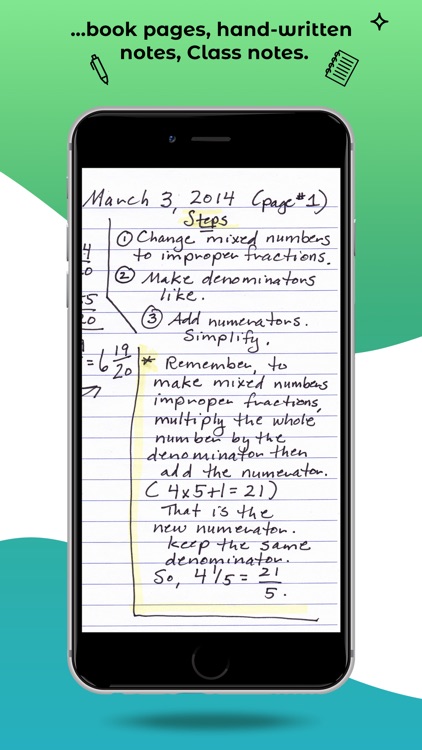 ...book pages, hand-written
notes, Class notes.
March 3, 2014 (page #1)
Steps
① Change mixed numbers
to improper fractions.
② Make denominators
like.
③ Add numerators.
Simplify.
= 6 19/20
* Remember, to
make mixed numbers
improper fractions,
multiply the whole
number by the
denominator then
add the numerator.
( 4x5+1 = 21 )
That is the
new numerator.
keep the same
denominator.
So, 4 1/5 = 21/5.